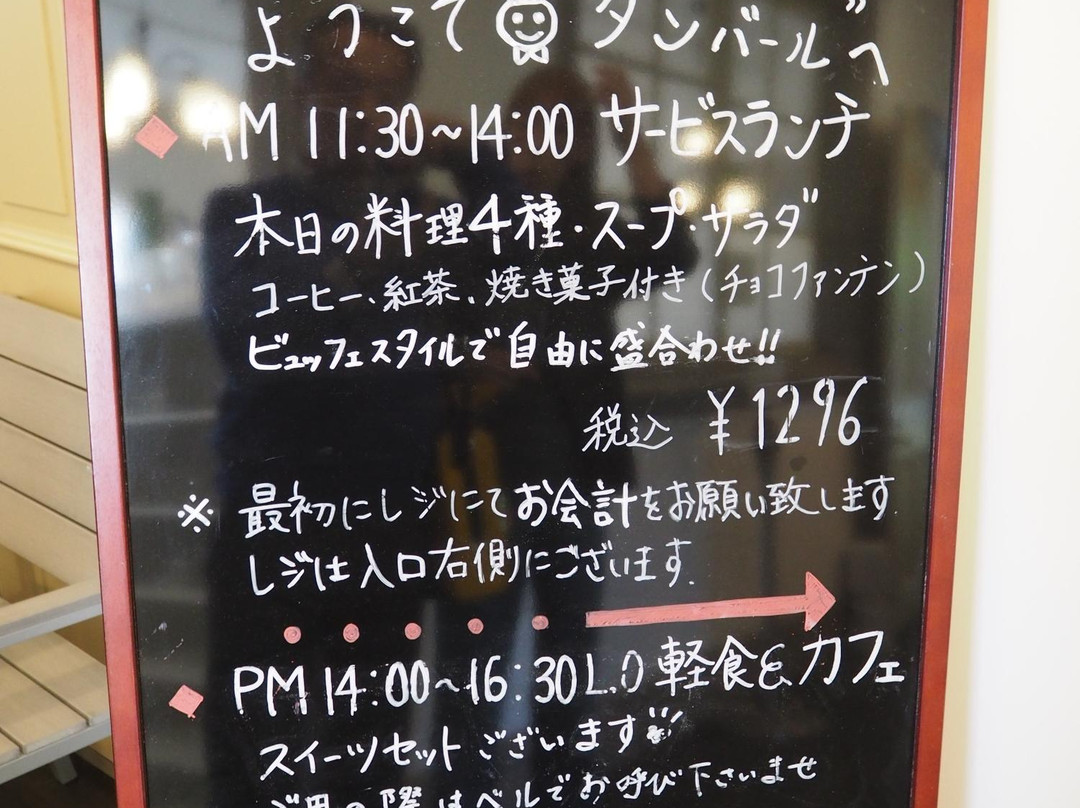 ようこそ タンバールへ
AM 11:30~14:00 サービスランチ
本日の料理4種・スープ・サラダ
コーヒー、紅茶、焼き菓子付き(チョコファンテン)
ビュッフェスタイルで自由に盛合わせ!!
税込 ¥1296
※ 最初にレジにてお会計をお願い致します.
レジは入口右側にございます.
PM 14:00~16:30 L.O 軽食&カフェ
スイーツセットございます
の際はベルでお呼び下さいませ